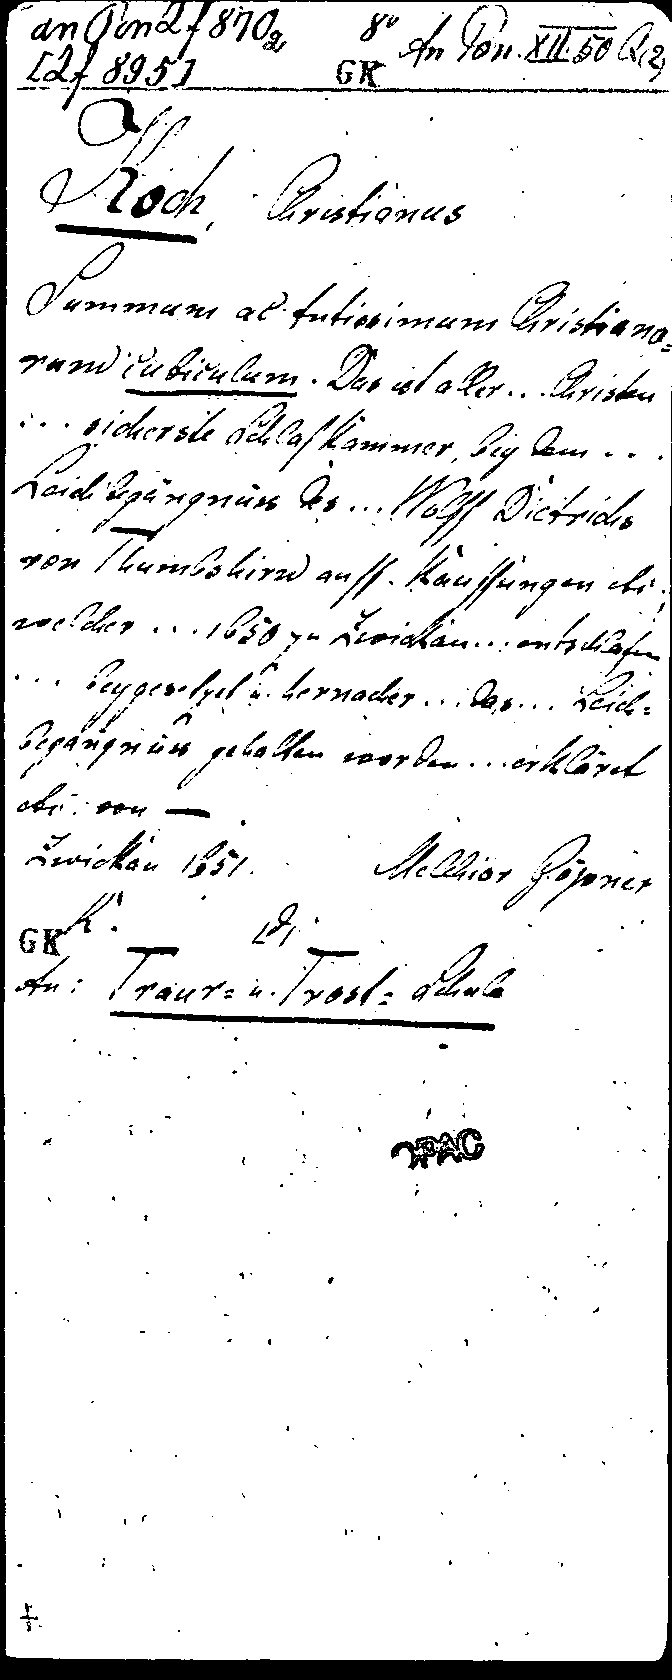 an Pon 2f 870, 2
8° An Pon. XII. 50 Q (2)
[2f 895]
GK
Koch, Christianus
Summum ac tutissimum Christiano=
rum cubiculum. Das ist aller... Christen
... sicherste Schlaffkammer, bey dem ...
Leichbegängnüss des ... Wolff Dietrichs
von Thumbshirn auff. Kauffungen etc.,
welcher ... 1650 zu Zwickau... entschlafen
... beygesetzet u. hernacher ... das ... Leich=
begängnüss gehalten worden ... erkläret
etc. von —
Zwickau 1651. Melchior Göpner
GK K.
An: Traur= u. Trost= Schule
OPAC